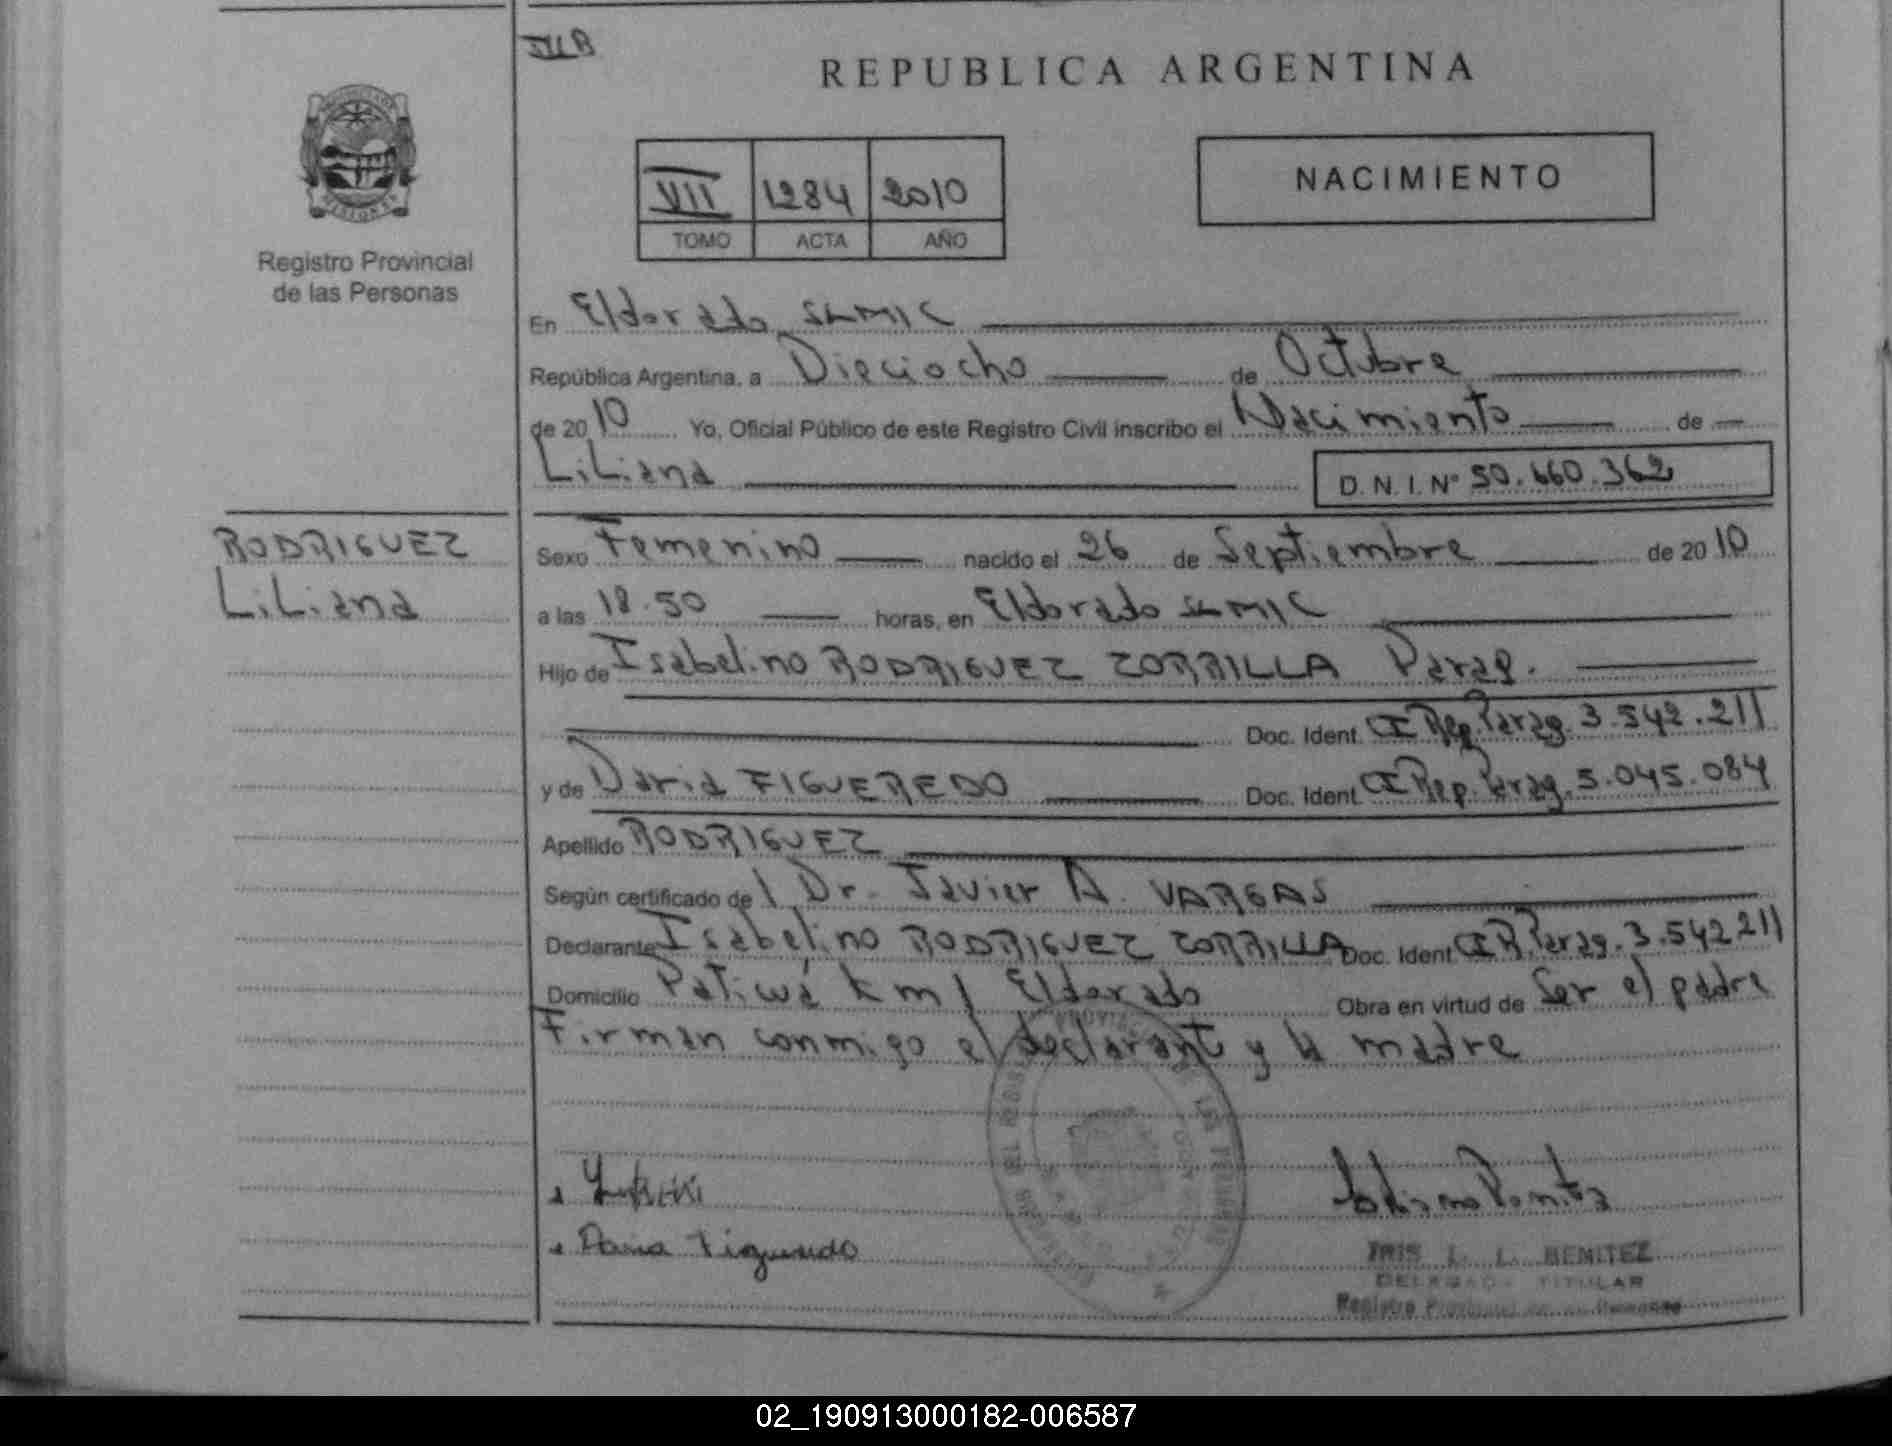 REPUBLICA ARGENTINA
VII 1284 2010
TOMO ACTA AÑO
NACIMIENTO
MISIONES
Registro Provincial
de las Personas
En Eldorado SAMIC
República Argentina, a Dieciocho de Octubre
de 2010 Yo, Oficial Público de este Registro Civil inscribo el Nacimiento de
Liliana D.N.I. Nº 50.660.362
RODRIGUEZ
Liliana
Sexo Femenino nacido el 26 de Septiembre de 2010
a las 18.50 horas, en Eldorado SAMIC
Hijo de Isabelino RODRIGUEZ ZORRILLA Parag.
Doc. Ident. CI Rep. Parag. 3.542.211
y de Daria FIGUEREDO Doc. Ident. CI Rep. Parag. 5.045.084
Apellido RODRIGUEZ
Según certificado de l Dr. Javier A. VARGAS
Declarante Isabelino RODRIGUEZ ZORRILLA Doc. Ident. CI R. Parag. 3.542.211
Domicilio km 1 Eldorado Obra en virtud de Ser el padre
Firman conmigo el declarant y la madre
Daria Figueredo
IRIS L. L. BENITEZ
DELEGADA TITULAR
Registro Provincial de las Personas
02_190913000182-006587